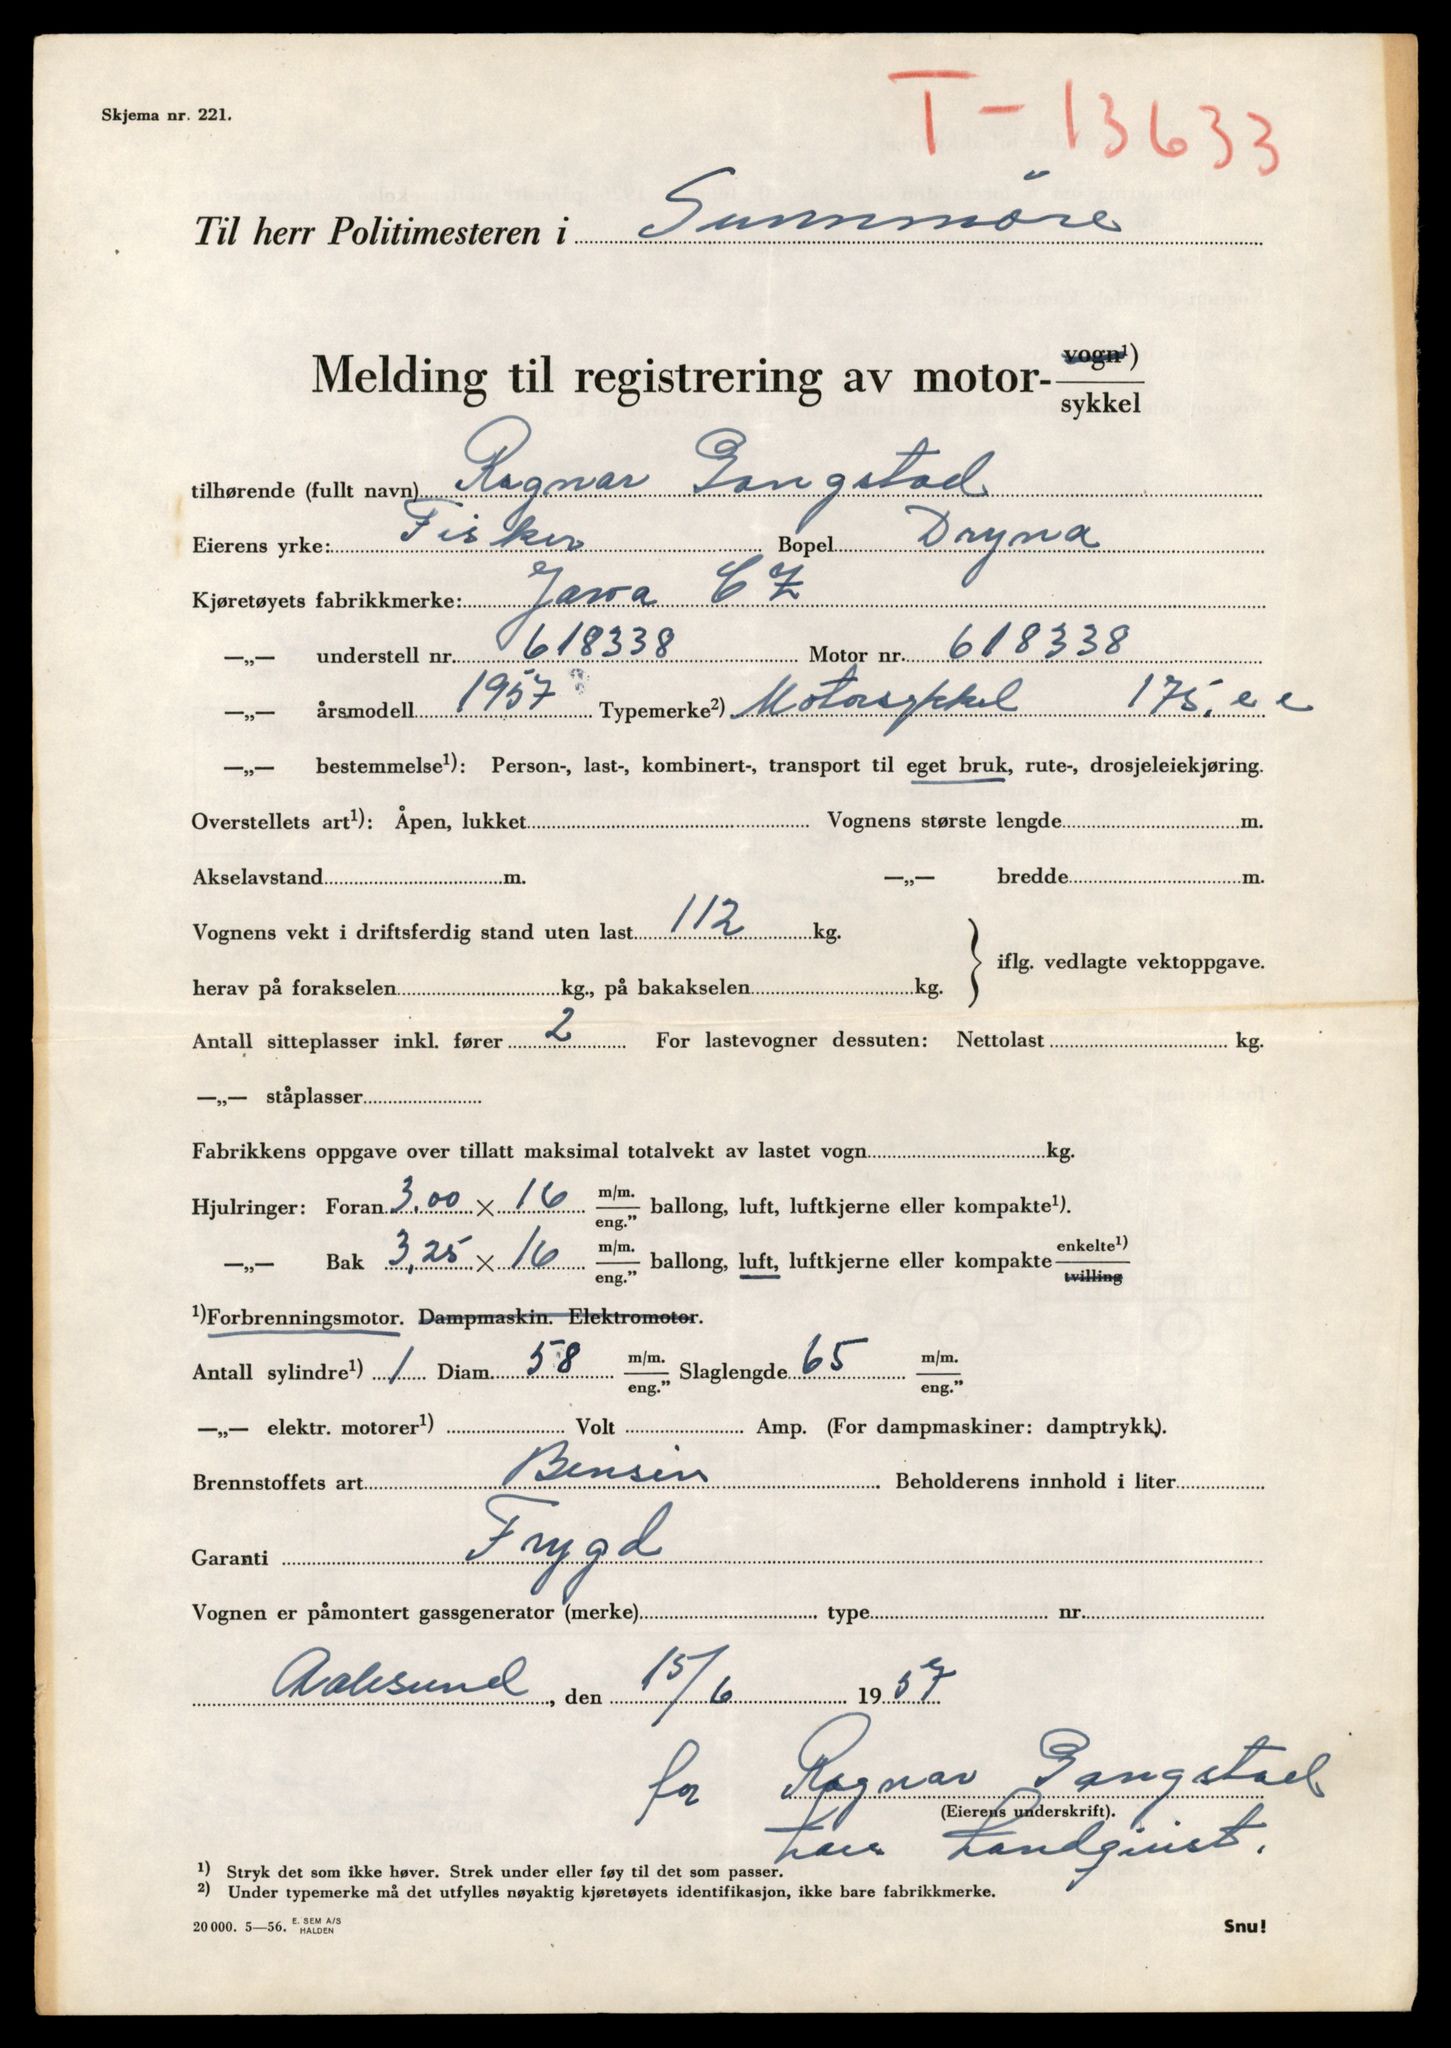 T-13633
Skjema nr. 221.
Til herr Politimesteren i Sunnmöre
Melding til registrering av motor- vogn¹) / sykkel
tilhørende (fullt navn) Ragnar Gangstad
Eierens yrke: Fisker Bopel Dryna
Kjøretøyets fabrikkmerke: Jawa CZ
—„— understell nr. 618338 Motor nr. 618338
—„— årsmodell 1957 Typemerke²) Motorsykkel 175. c c
—„— bestemmelse¹): Person-, last-, kombinert-, transport til eget bruk, rute-, drosjeleiekjøring.
Overstellets art¹): Åpen, lukket Vognens største lengde m.
Akselavstand m. —„— bredde m.
Vognens vekt i driftsferdig stand uten last 112 kg.
herav på forakselen kg., på bakakselen kg. } iflg. vedlagte vektoppgave.
Antall sitteplasser inkl. fører 2 For lastevogner dessuten: Nettolast kg.
—„— ståplasser
Fabrikkens oppgave over tillatt maksimal totalvekt av lastet vogn kg.
Hjulringer: Foran 3,00 × 16 m/m. / eng.” ballong, luft, luftkjerne eller kompakte¹).
—„— Bak 3,25 × 16 m/m. / eng.” ballong, luft, luftkjerne eller kompakte enkelte¹) / tvilling
¹)Forbrenningsmotor. Dampmaskin. Elektromotor.
Antall sylindre¹) 1 Diam. 58 m/m. / eng.” Slaglengde 65 m/m. / eng.”
—„— elektr. motorer¹) Volt Amp. (For dampmaskiner: damptrykk).
Brennstoffets art Bensin Beholderens innhold i liter
Garanti Trygd
Vognen er påmontert gassgenerator (merke) type nr.
Aalesund, den 15/6 1957
for Ragnar Gangstad
(Eierens underskrift).
Landqvist.
¹) Stryk det som ikke høver. Strek under eller føy til det som passer.
²) Under typemerke må det utfylles nøyaktig kjøretøyets identifikasjon, ikke bare fabrikkmerke.
20 000. 5—56. E. SEM A/S HALDEN
Snu!